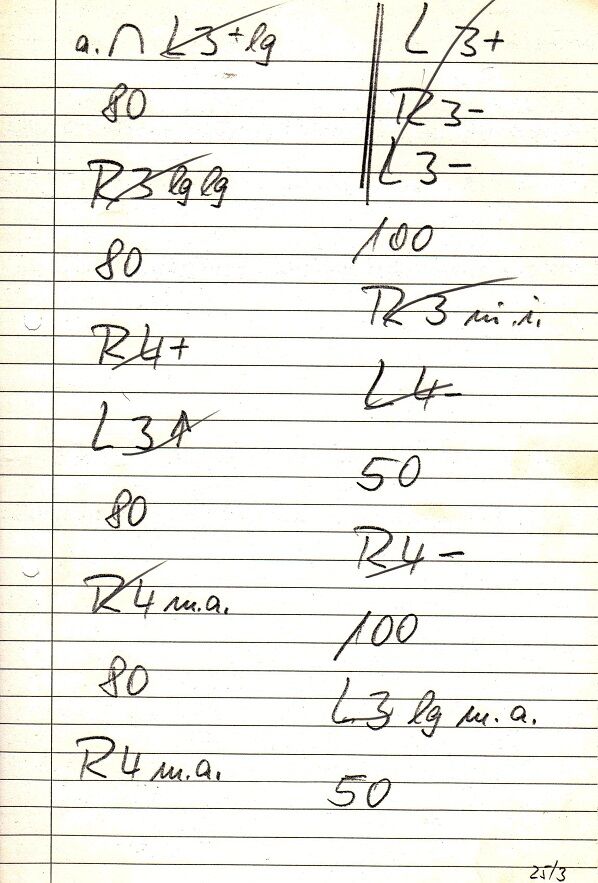 a. ∩ L3+lg
80
R3 lg lg
80
R4+
L3↑
80
R4 m.a.
80
R4 m.a.
L 3+
R3-
L3-
100
R3 m.i.
L4-
50
R4-
100
L3 lg m.a.
50
25/3